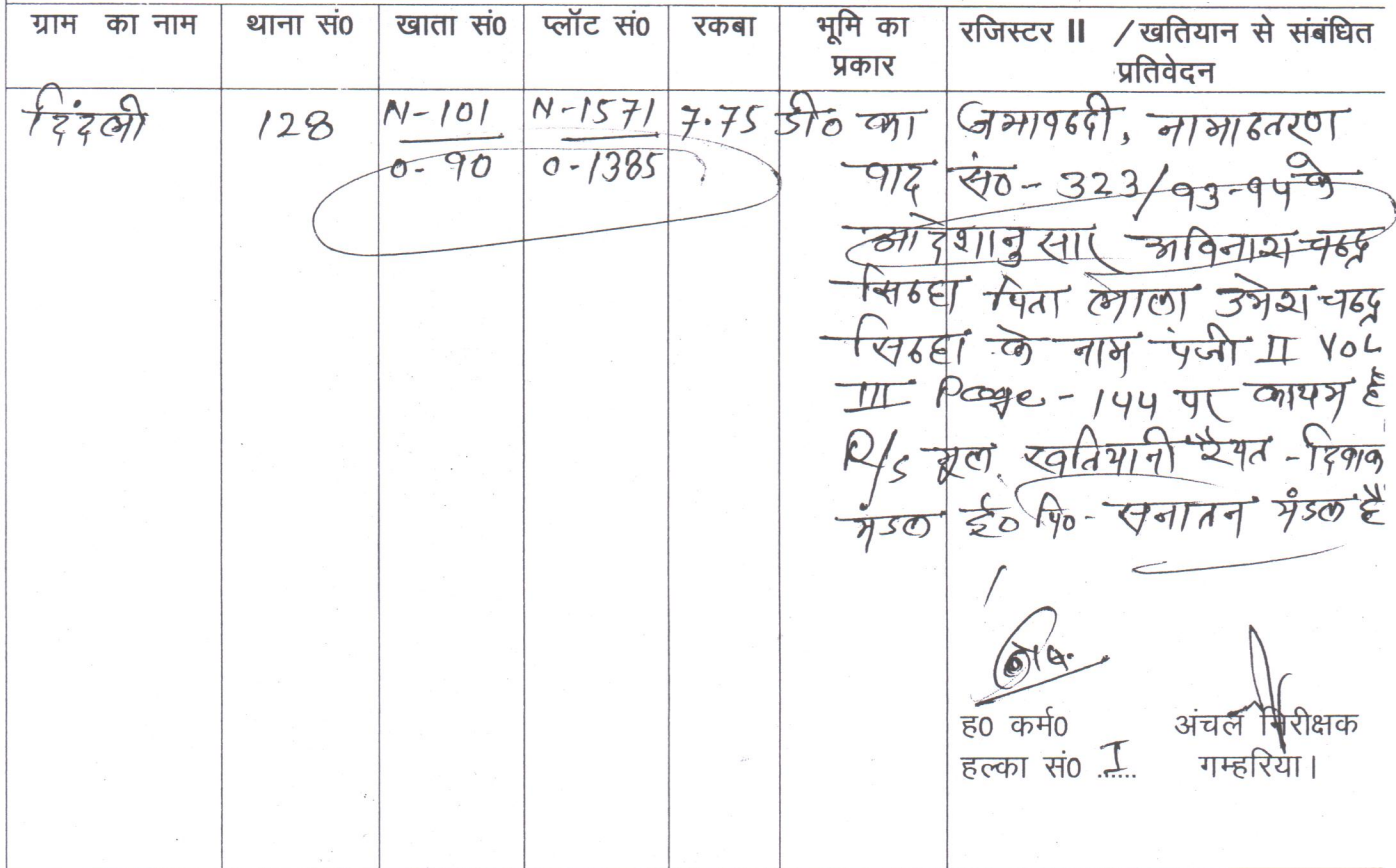 ग्राम का नाम थाना सं0 खाता सं0 प्लॉट सं0 रकबा भूमि का प्रकार रजिस्टर II / खतियान से संबंधित प्रतिवेदन
दिंदली 128 N-101 N-1571 7.75 डी० का जमाबन्दी, नामान्तरण
0-90 0-1385 वाद सं०-323/93-94 के
आदेशानुसार अविनाश चन्द्र
सिन्हा पिता लाला उमेश चन्द्र
सिन्हा के नाम पंजी II VOL
III Page-144 पर कायम है
R/S मूल खतियानी रैयत - दिवाक
मंडल ई० पि०- सनातन मंडल है
ह0 कर्म0 अंचल निरीक्षक
हल्का सं0 I गम्हरिया।